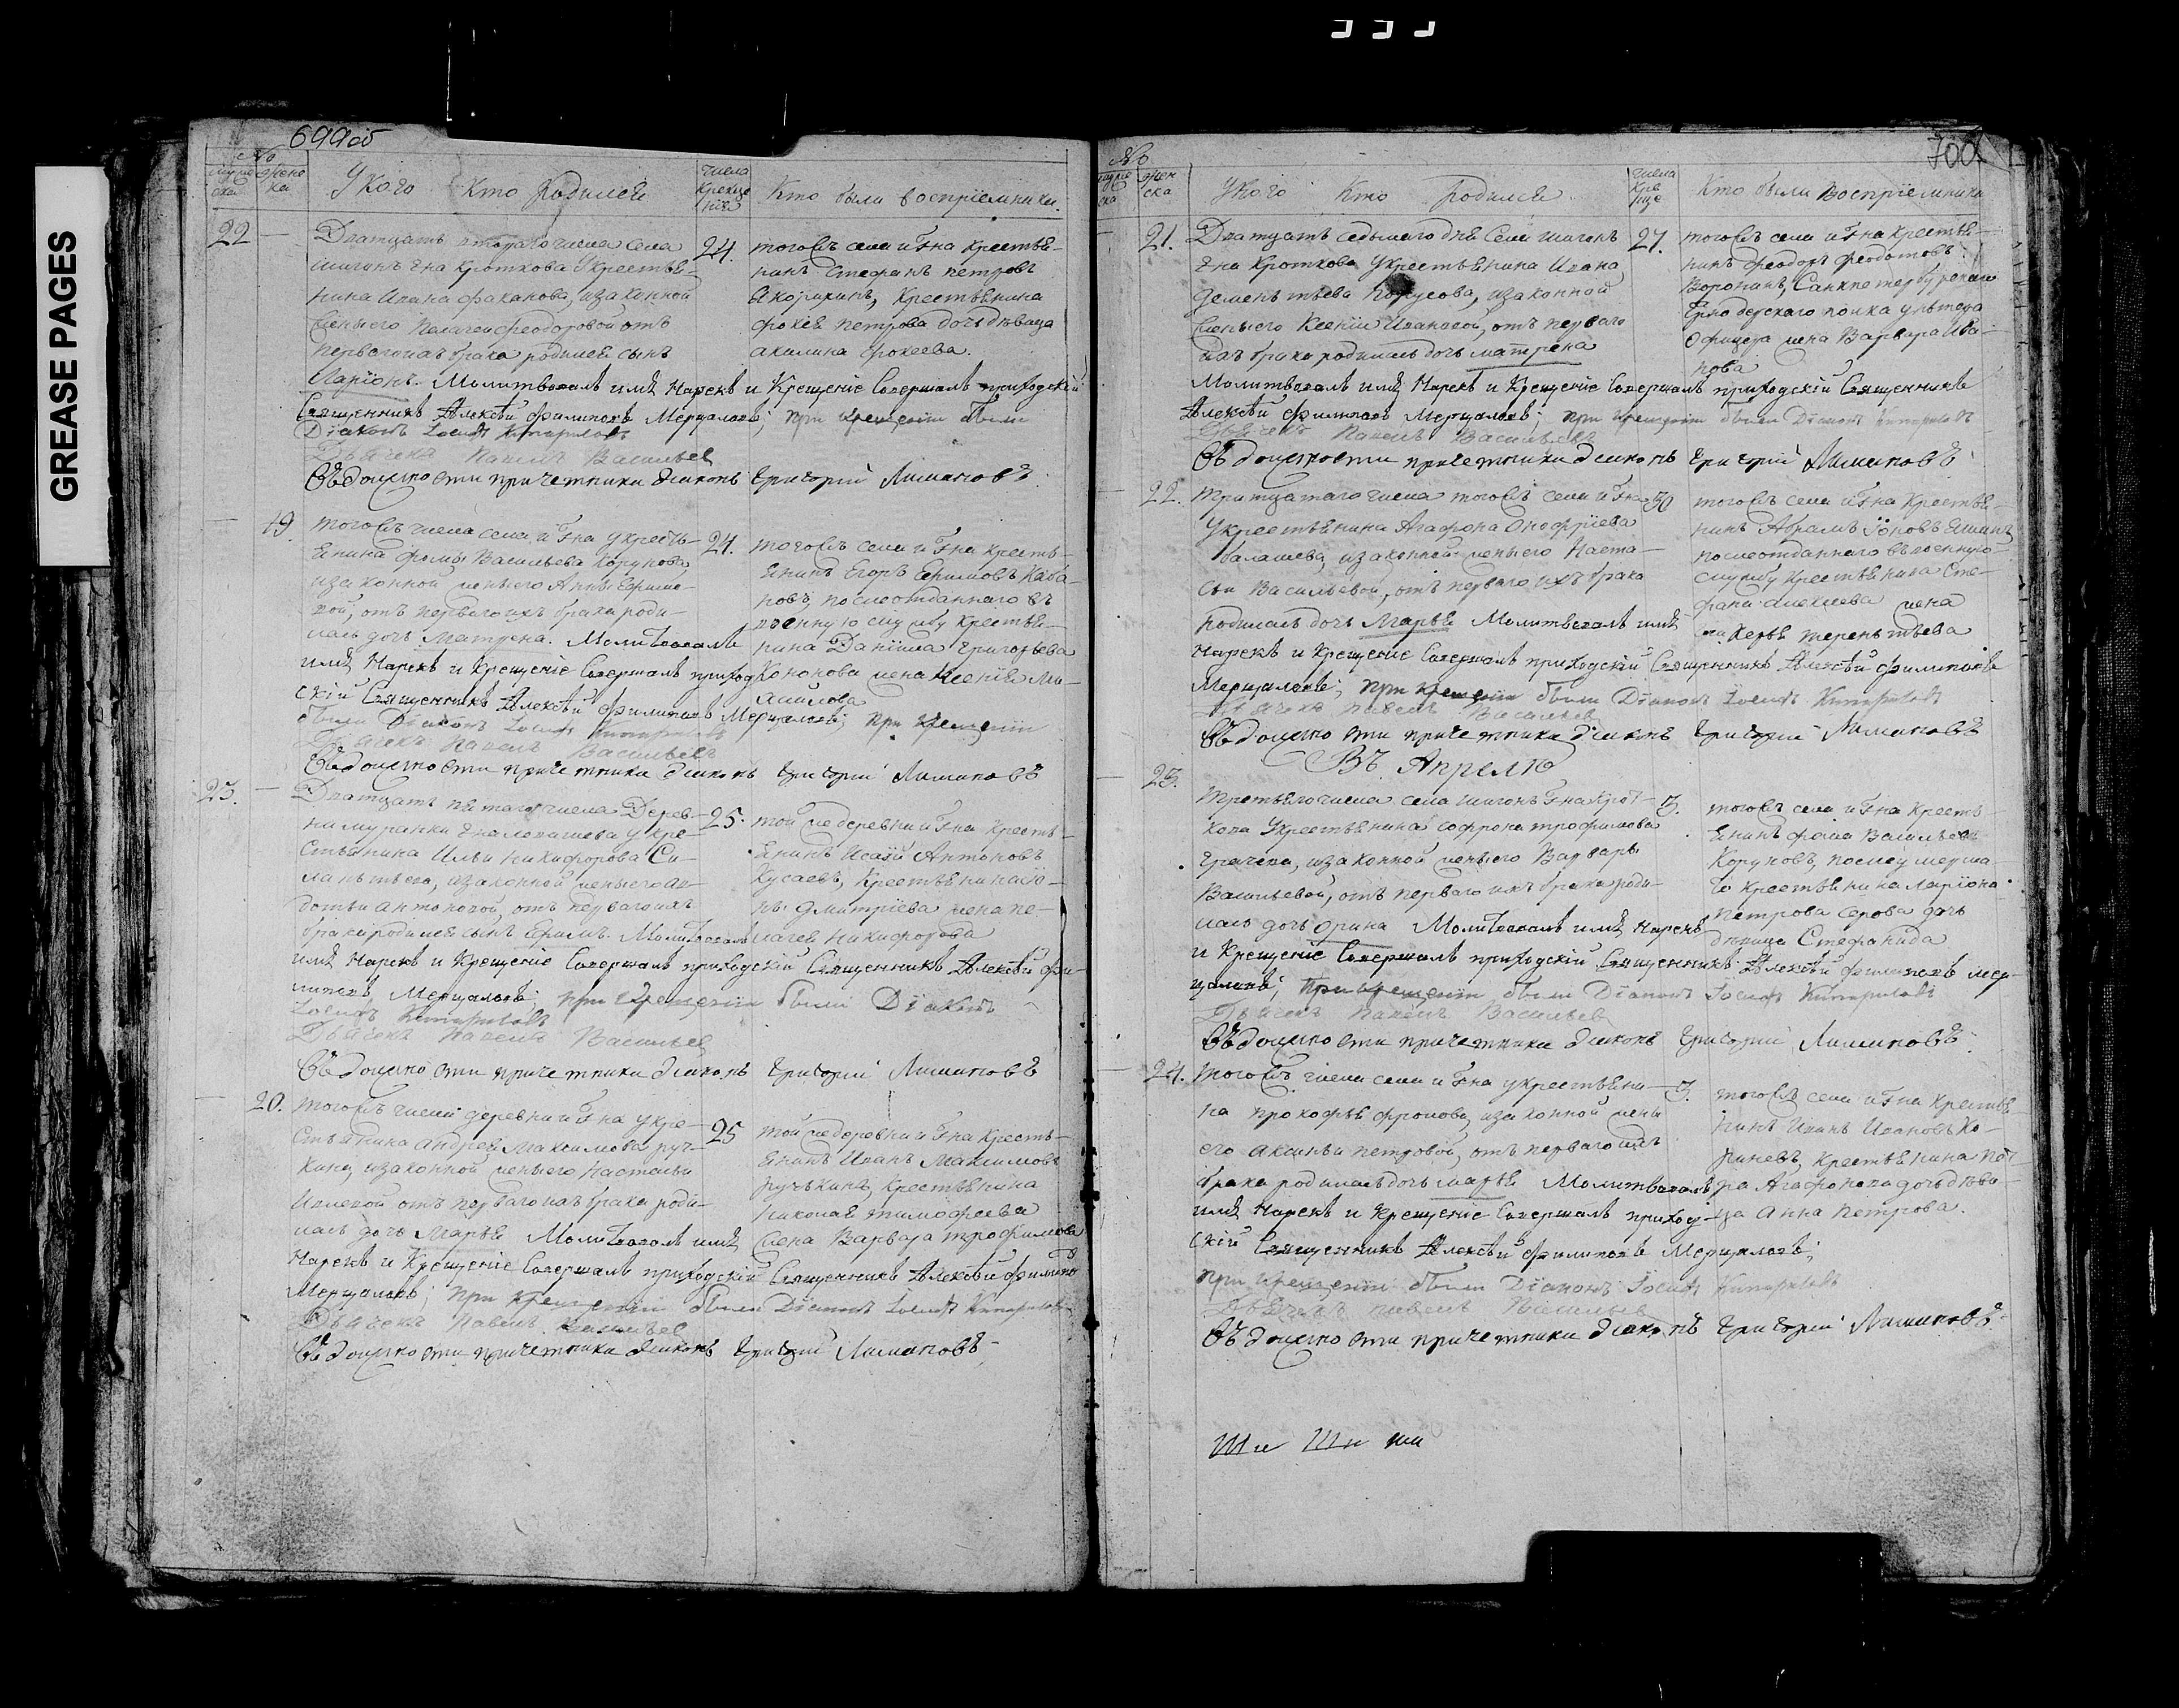 GREASE PAGES
699об
No
муже
ска
женс
ка
У кого Кто Родился
числа
Креще
нія
Кто были восприемники.
22
Дватцать втораго числа села
шигонъ Гна Кроткова Укрестья-
нина Ивана факанова, изаконной
жены его Пелагеи феодоровой отъ
перваго ихъ брака родился сынъ
Иларіонъ. Молитвовалъ имя Нарекъ и Крещеніе Совершалъ приходскій
Священникъ Алексѣй филиповъ Мерцаловъ; при крещеніи были
Діаконъ Іосифъ Кипарисовъ
Дьячекъ Павелъ Васильевъ
Въ должности причетника дьяконъ Григорій Лимановъ
24.
тогожъ села и Гна крестья-
нинъ Стефанъ петровъ
крестьянина
фокея петрова дочь дѣвица
акилина фокеева.
19.
Тогожъ числа села и Гна у кресть-
янина фомы Васильева Корунова,
изаконной жены его Анны Ефимо-
вой, отъ перваго ихъ брака роди-
лась дочь Матрена. Молитвовалъ
имя Нарекъ и Крещеніе Совершалъ приход-
скій Священникъ Алексѣй филиповъ Мерцаловъ; при крещеніи
были Діаконъ Іосифъ Кипарисовъ
Дьячекъ Павелъ Васильевъ
Въ должности причетника дьяконъ Григорій Лимановъ
24.
тогожъ села и Гна кресть-
янинъ Егоръ Ефимовъ Каба-
новъ, после отданнаго въ
военную службу крестья-
нина Даніила Григорьева
Кононова жена Ксенія Ми-
хайлова
23.
Дватцать пятаго числа Дерев-
ни муранки Гна у кре-
стьянина Ильи никифорова Си-
лантьева, изаконной жены его ав-
дотьи антоновой, отъ перваго ихъ
брака родился сынъ Ефимъ. Молитвовалъ
имя Нарекъ и Крещеніе Совершалъ приходскій Священникъ Алексѣй фи-
липовъ Мерцаловъ; при крещеніи были Діаконъ
Іосифъ Кипарисовъ
Дьячекъ Павелъ Васильевъ
Въ должности причетника дьяконъ Григорій Лимановъ
25.
той же деревни и Гна кресть-
янинъ Исаій Антоновъ
Кусаевъ, Крестьянина
дмитріева жена пе-
лагея никифорова
20.
тогожъ числа деревни и Гна у кре-
стьянина андрея максимова руч-
кина, изаконной жены его настасьи
Ивлевой отъ перваго ихъ брака роди-
лась дочь Марья Молитвовалъ имя
Нарекъ и Крещеніе Совершалъ приходскій Священникъ Алексѣй филипо
Мерцаловъ; при крещеніи были Діаконъ Іосифъ Кипарисовъ
Дьячекъ Павелъ Васильевъ
Въ должности причетника дьяконъ Григорій Лимановъ
25
той же деревни и Гна кресть-
янинъ Иванъ Максимовъ
ручькинъ, крестьянина
николая тимофеева
жена Варвара трофимова
700
No
муже
ска
жен
ска
Укого Кто родился
числа
Кре
ще
Кто были Восприемники
21.
Дватцать седьмаго дня Села шигонъ
Гна Кроткова Укрестьянина Ивана
дементьева изаконной
жены его Ксеніи Ивановой, отъ перваго
ихъ брака родилась дочь матрена
Молитвовалъ имя Нарекъ и Крещеніе Совершалъ приходскій Священникъ
Алексѣй филиповъ Мерцаловъ; при крещеніи были Діаконъ Кипарисовъ
Дьячекъ Павелъ Васильевъ
Въ должности причетника дьяконъ Григорій Лимановъ
27.
тогожъ села и Гна крестья-
нинъ феодоръ феодотовъ
Воронинъ, Санкпетербурскаго
полка
Офицера жена Варвара Ива-
нова
22.
Тритцатаго числа тогожъ села и Гна
Укрестьянина Агафона Онофріева
балашева, изаконной жены его Наста-
сьи Васильевой, отъ перваго ихъ брака
родилась дочь Марья Молитвовалъ имя
Нарекъ и Крещеніе Совершалъ приходскій Священникъ Алексѣй филиповъ
Мерцаловъ; при крещеніи были Діаконъ Іосифъ Кипарисовъ
Дьячекъ Павелъ Васильевъ
Въ должности причетника дьяконъ Григорій Лимановъ
30
тогожъ села и Гна крестья-
нинъ Абрамъ
после отданнаго въ военную
службу крестьянина Сте-
фана алексеева жена
терентьева
Въ Апрелю
23.
Третьяго числа села шигонъ Гна Крот-
кова Укрестьянина софрона трофимова
Грачева, изаконной жены его Варвары
Васильевой, отъ перваго ихъ брака роди-
лась дочь Орина Молитвовалъ имя Нарекъ
и Крещеніе Совершалъ приходскій Священникъ Алексѣй филиповъ мер-
цаловъ; При крещеніи были Діаконъ Іосифъ Кипарисовъ
Дьячекъ Павелъ Васильевъ
Въ должности причетника дьяконъ Григорій Лимановъ
3.
тогожъ села и Гна кресть-
янинъ фома Васильевъ
Коруновъ, после умерша-
го крестьянина ларіона
петрова серова дочь
девица Стефанида
24.
Тогожъ числа села и Гна укрестьяни-
на прокофья фролова, изаконной жены
его аксиньи петровой, отъ перваго ихъ
брака родилась дочь марья Молитвовалъ
имя Нарекъ и Крещеніе Совершалъ приход-
скій Священникъ Алексѣй филиповъ Мерцаловъ;
при крещеніи были Діаконъ Іосифъ Кипарисовъ
Дьячекъ Павелъ Васильевъ
Въ должности причетника дьяконъ Григорій Лимановъ
3.
тогожъ села и Гна крестья-
нинъ Иванъ Ивановъ Ко-
риневъ, крестьянина пет-
ра Агафонова дочь дѣви-
ца Анна Петрова.